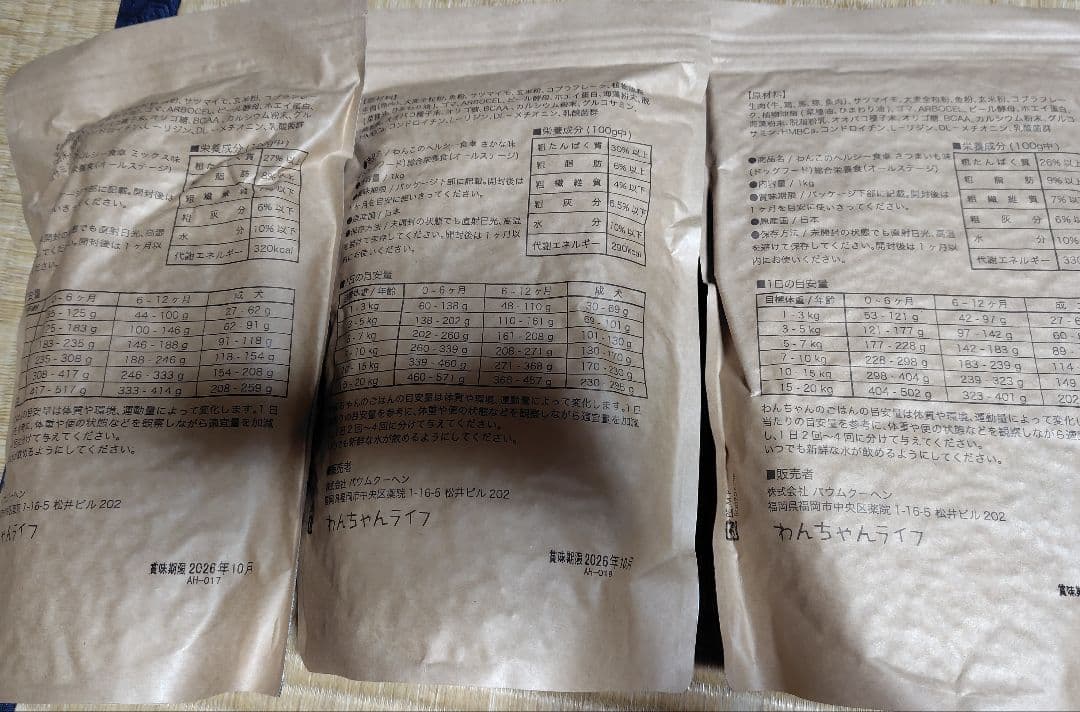 粉、サツマイモ、玄米粉、コプラフレー
ゴマ、ARBOCEL、ビール酵母、ホエイ蛋白、
オリゴ糖、BCAA、カルシウム粉末、グル
コンドロイチン、L-リジン、DL-メチオニン、乳酸菌群
■栄養成分(100g中)
ヘルシー食卓 ミックス味
総合栄養食(オールステージ)
粗たんぱく質 27%以上
粗脂肪
粗繊維質
粗灰分 6%以下
水分 10%以下
代謝エネルギー 320kcal
パッケージ下部に記載。開封後は
の状態でも直射日光、高温
ください。開封後は1ヶ月以
0-6ヶ月 6-12ヶ月 成犬
125g 44-100g 27-62g
75-183g 100-146g 62-91g
183-235g 146-188g 91-118g
235-308g 188-246g 118-154g
308-417g 246-333g 154-208g
417-517g 333-414g 208-259g
目安量は体質や環境、運動量によって変化します。1日
体重や便の状態などを観察しながら適宜量を加減
に分けて与えてください。
めるようにしてください。
1-16-5 松井ビル 202
ゃんライフ
賞味期限 2026年10月
AH-017
【原材料】
大麦全粒粉、魚粉、サツマイモ、玄米粉、コプラフレーク、植物油脂
ゴマ、ARBOCEL、ビール酵母、ホエイ蛋白、海藻粉末、脱
オオバコ種子末、オリゴ糖、BCAA、カルシウム粉末、グルコサミン、
HMBCa、コンドロイチン、L-リジン、DL-メチオニン、乳酸菌群
■栄養成分(100g中)
●商品名/わんこのヘルシー食卓 さかな味
(ドッグフード)総合栄養食(オールステージ)
●内容量/1kg
●賞味期限/パッケージ下部に記載。開封後は
1ヶ月を目安に使いきってください。
●原産国/日本
●保存方法/未開封の状態でも直射日光、高温
を避けて保存してください。開封後は1ヶ月以
内にお使いください。
粗たんぱく質 30%以上
粗脂肪 6%以上
粗繊維質 4%以下
粗灰分 6.5%以下
水分 10%以下
代謝エネルギー 290kcal
■1日の目安量
目標体重/年齢 0-6ヶ月 6-12ヶ月 成犬
1-3kg 60-138g 48-110g 30-69g
3-5kg 138-202g 110-161g 69-101g
5-7kg 202-260g 161-208g 101-130g
7-10kg 260-339g 208-271g 130-170g
10-15kg 339-460g 271-368g 170-230g
15-20kg 460-571g 368-457g 230-286g
わんちゃんのごはんの目安量は体質や環境、運動量によって変化します。1日
当たりの目安量を参考に、体重や便の状態などを観察しながら適宜量を加減
し、1日2回〜4回に分けて与えてください。
いつでも新鮮な水が飲めるようにしてください。
■販売者
株式会社 バウムクーヘン
福岡県福岡市中央区薬院 1-16-5 松井ビル 202
わんちゃんライフ
賞味期限 2026年10月
【原材料】
生肉(牛、鶏、馬、豚、魚肉)、サツマイモ、大麦全粒粉、魚粉、玄米粉、コプラフレー
ク、植物油脂(菜種油、ひまわり油)、ゴマ、ARBOCEL、ビール酵母、ホエイ蛋白、
海藻粉末、脱脂粉乳、オオバコ種子末、オリゴ糖、BCAA、カルシウム粉末、グルコ
サミン、HMBCa、コンドロイチン、L-リジン、DL-メチオニン、乳酸菌群
■栄養成分(100g中)
●商品名/わんこのヘルシー食卓 さつまいも味
(ドッグフード)総合栄養食(オールステージ)
●内容量/1kg
●賞味期限/パッケージ下部に記載。開封後は
1ヶ月を目安に使いきってください。
●原産国/日本
●保存方法/未開封の状態でも直射日光、高温
を避けて保存してください。開封後は1ヶ月以
内にお使いください。
粗たんぱく質 26%以上
粗脂肪 9%以上
粗繊維質 7%以
粗灰分 6%以
水分 10%
代謝エネルギー 330
■1日の目安量
目標体重/年齢 0-6ヶ月 6-12ヶ月 成
1-3kg 53-121g 42-97g 27-6
3-5kg 121-177g 97-142g 60-
5-7kg 177-228g 142-183g 89-
7-10kg 228-298g 183-239g 114
10-15kg 298-404g 239-323g 149
15-20kg 404-502g 323-401g 202
わんちゃんのごはんの目安量は体質や環境、運動量によって変
当たりの目安量を参考に、体重や便の状態などを観察しながら適
し、1日2回〜4回に分けて与えてください。
いつでも新鮮な水が飲めるようにしてください。
■販売者
株式会社 バウムクーヘン
福岡県福岡市中央区薬院 1-16-5 松井ビル 202
わんちゃんライフ
賞味